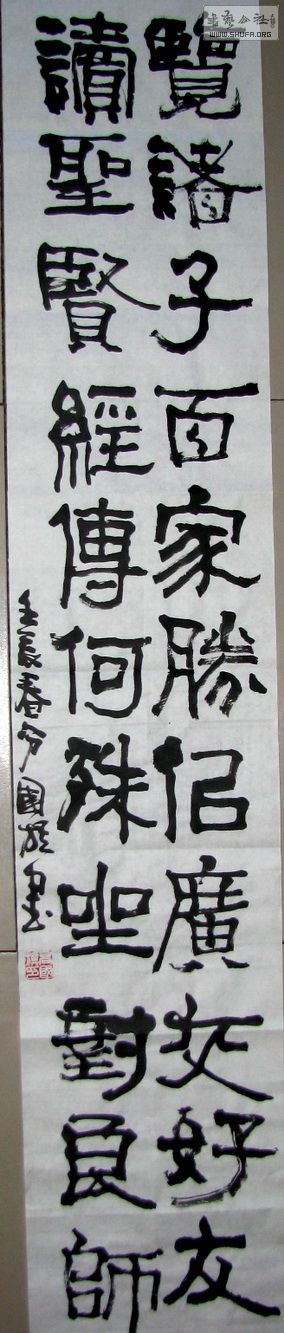 覽諸子百家勝佀廣交好友
讀聖賢經傳何殊坐對良師
壬辰春分國書
書藝公社
WWW.SHUFA.ORG